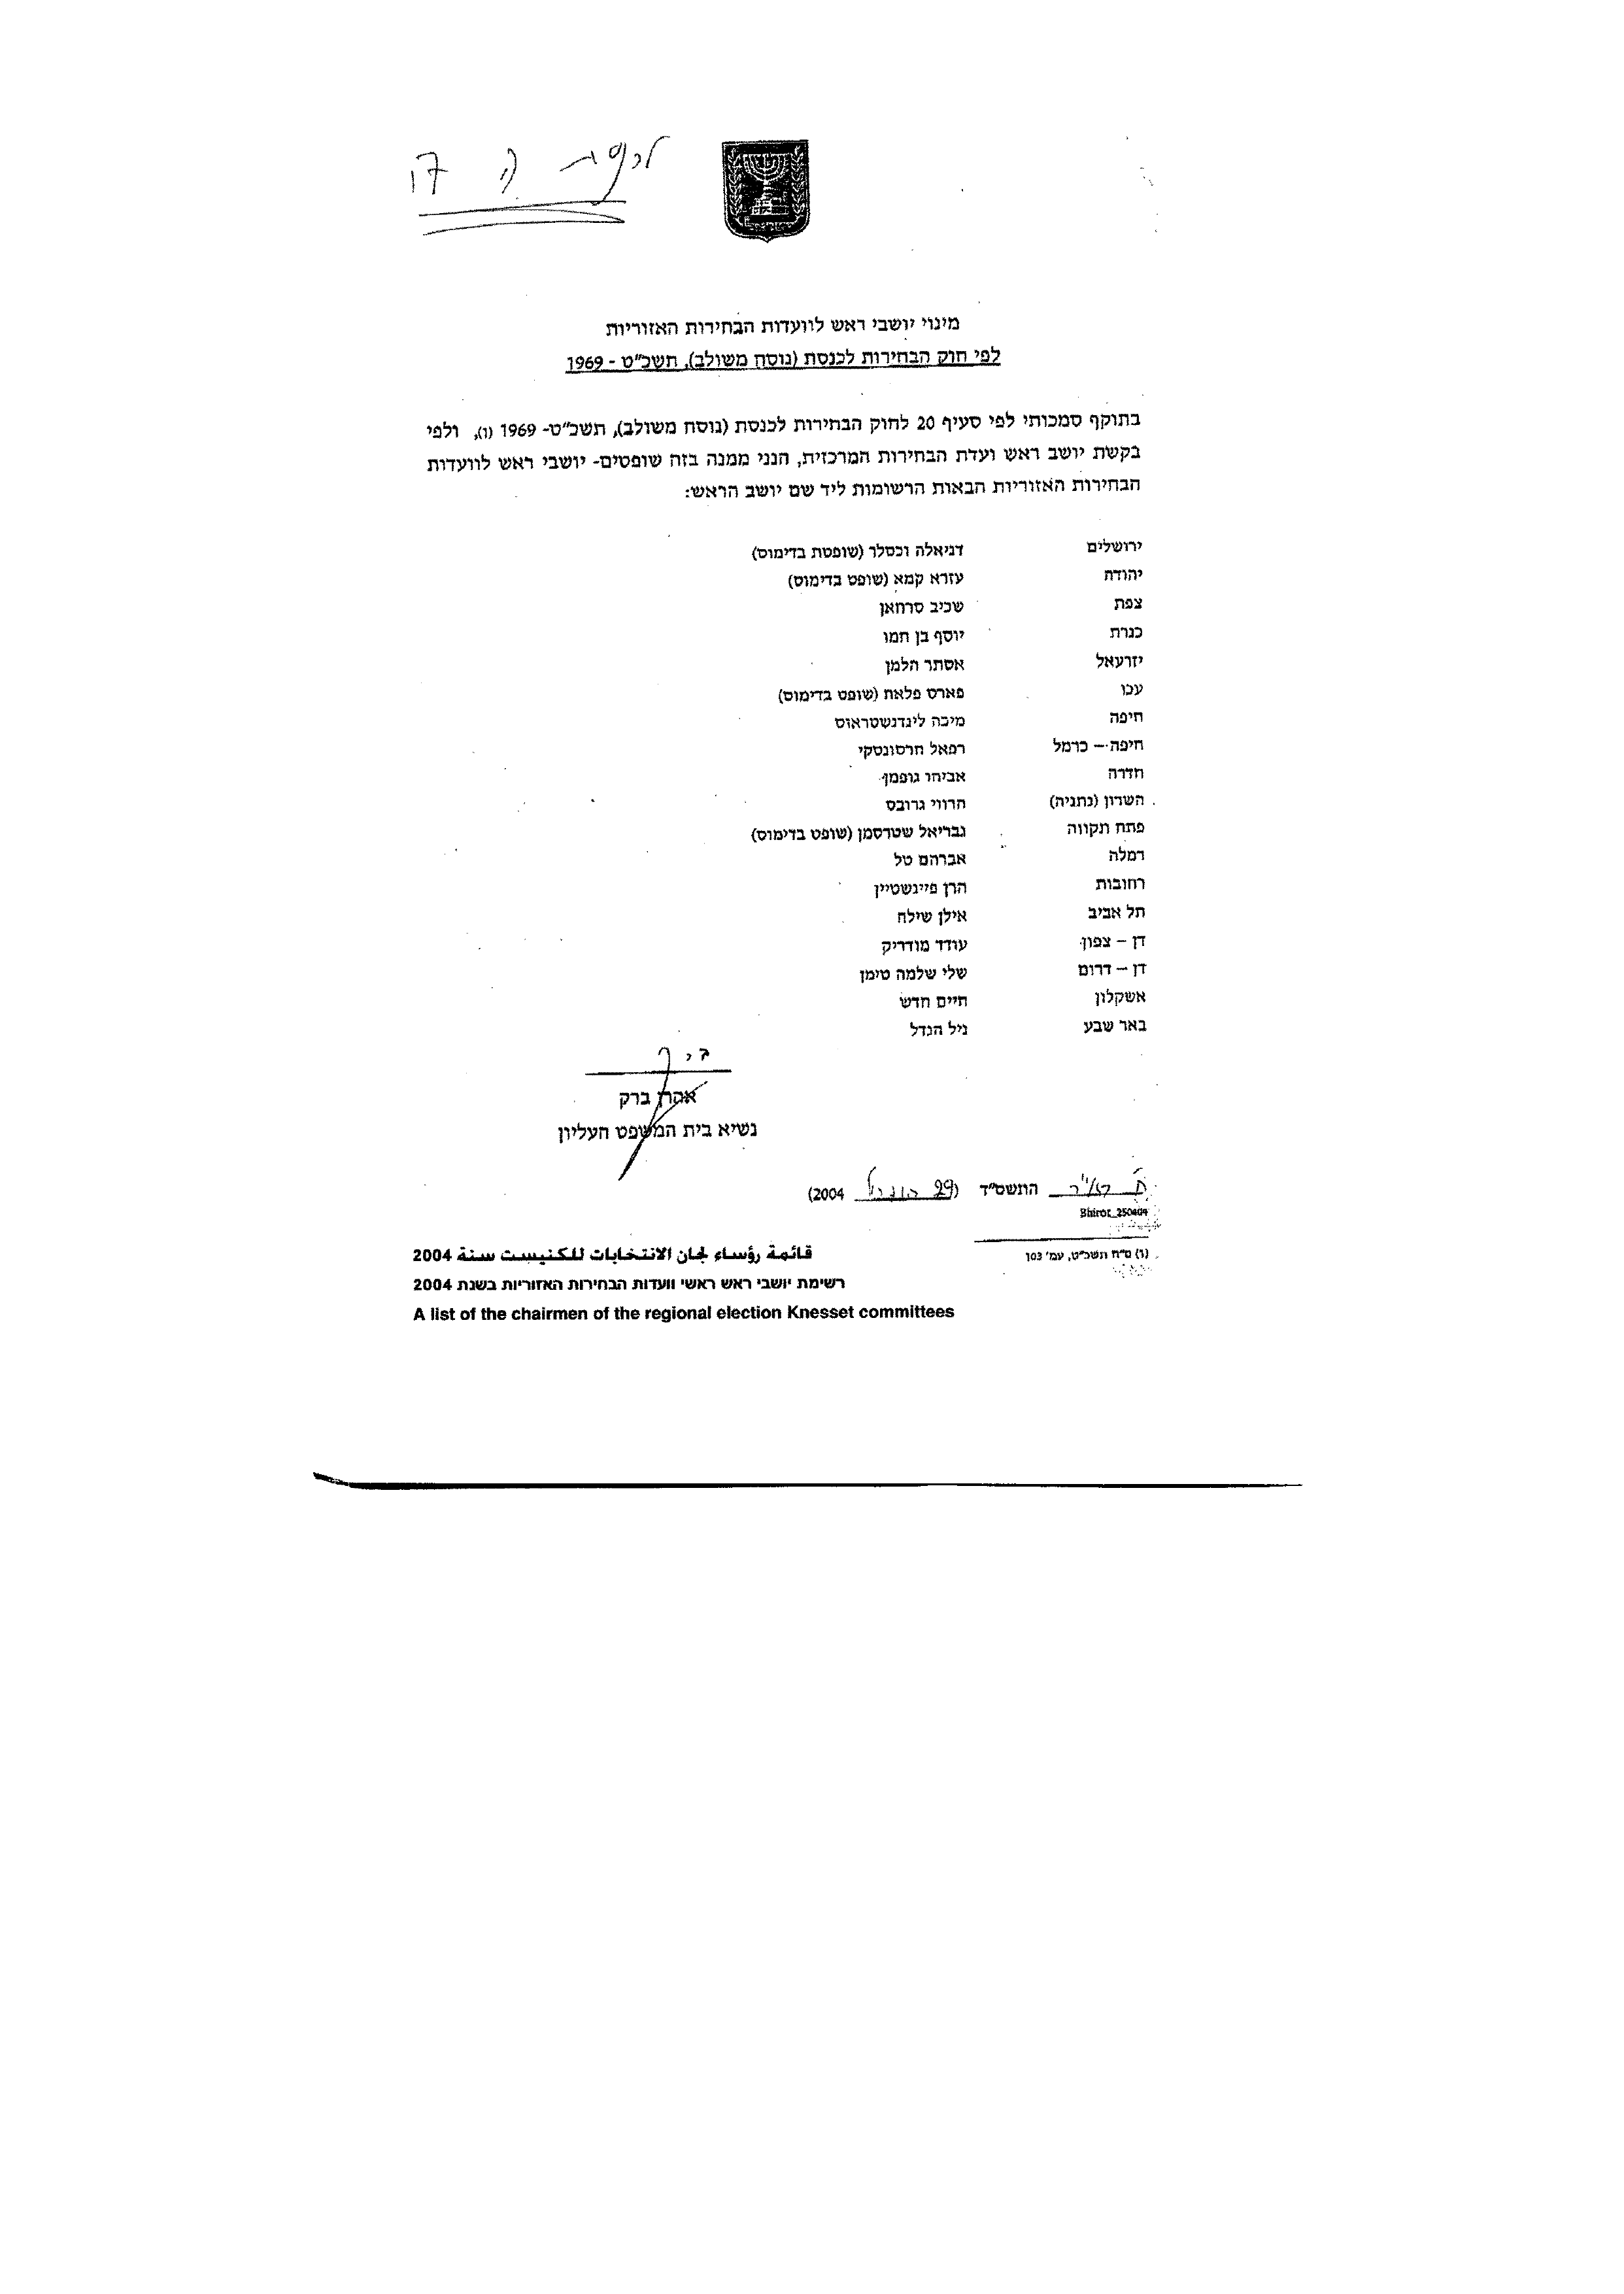 לכנסת ה 17
מינוי יושבי ראש לוועדות הבחירות האזוריות
לפי חוק הבחירות לכנסת (נוסח משולב), תשכ"ט - 1969
בתוקף סמכותי לפי סעיף 20 לחוק הבחירות לכנסת (נוסח משולב), תשכ"ט- 1969 (1), ולפי
בקשת יושב ראש ועדת הבחירות המרכזית, הנני ממנה בזה שופטים- יושבי ראש לוועדות
הבחירות האזוריות הבאות הרשומות ליד שם יושב הראש:
ירושלים דניאלה וכסלר (שופטת בדימוס)
יהודה עזרא קמא (שופט בדימוס)
צפת שכיב סרחאן
כנרת יוסף בן חמו
יזרעאל אסתר הלמן
עכו פארס פלאח (שופט בדימוס)
חיפה מיכה לינדנשטראוס
חיפה – כרמל רפאל חרסונסקי
חדרה אביהו גופמן
השרון (נתניה) הרווי גרובס
פתח תקווה גבריאל שטרסמן (שופט בדימוס)
רמלה אברהם טל
רחובות הרן פיינשטיין
תל אביב אילן שילה
דן – צפון עודד מודריק
דן – דרום שלי שלמה טימן
אשקלון חיים חדש
באר שבע ניל הנדל
אהרן ברק
נשיא בית המשפט העליון
ח' באייר התשס"ד (29 באפריל 2004)
Bhirot_250404
(1) ס"ח תשכ"ט, עמ' 103
قائمة رؤساء لجان الانتخابات للكنيست سنة 2004
רשימת יושבי ראש ראשי וועדות הבחירות האזוריות בשנת 2004
A list of the chairmen of the regional election Knesset committees